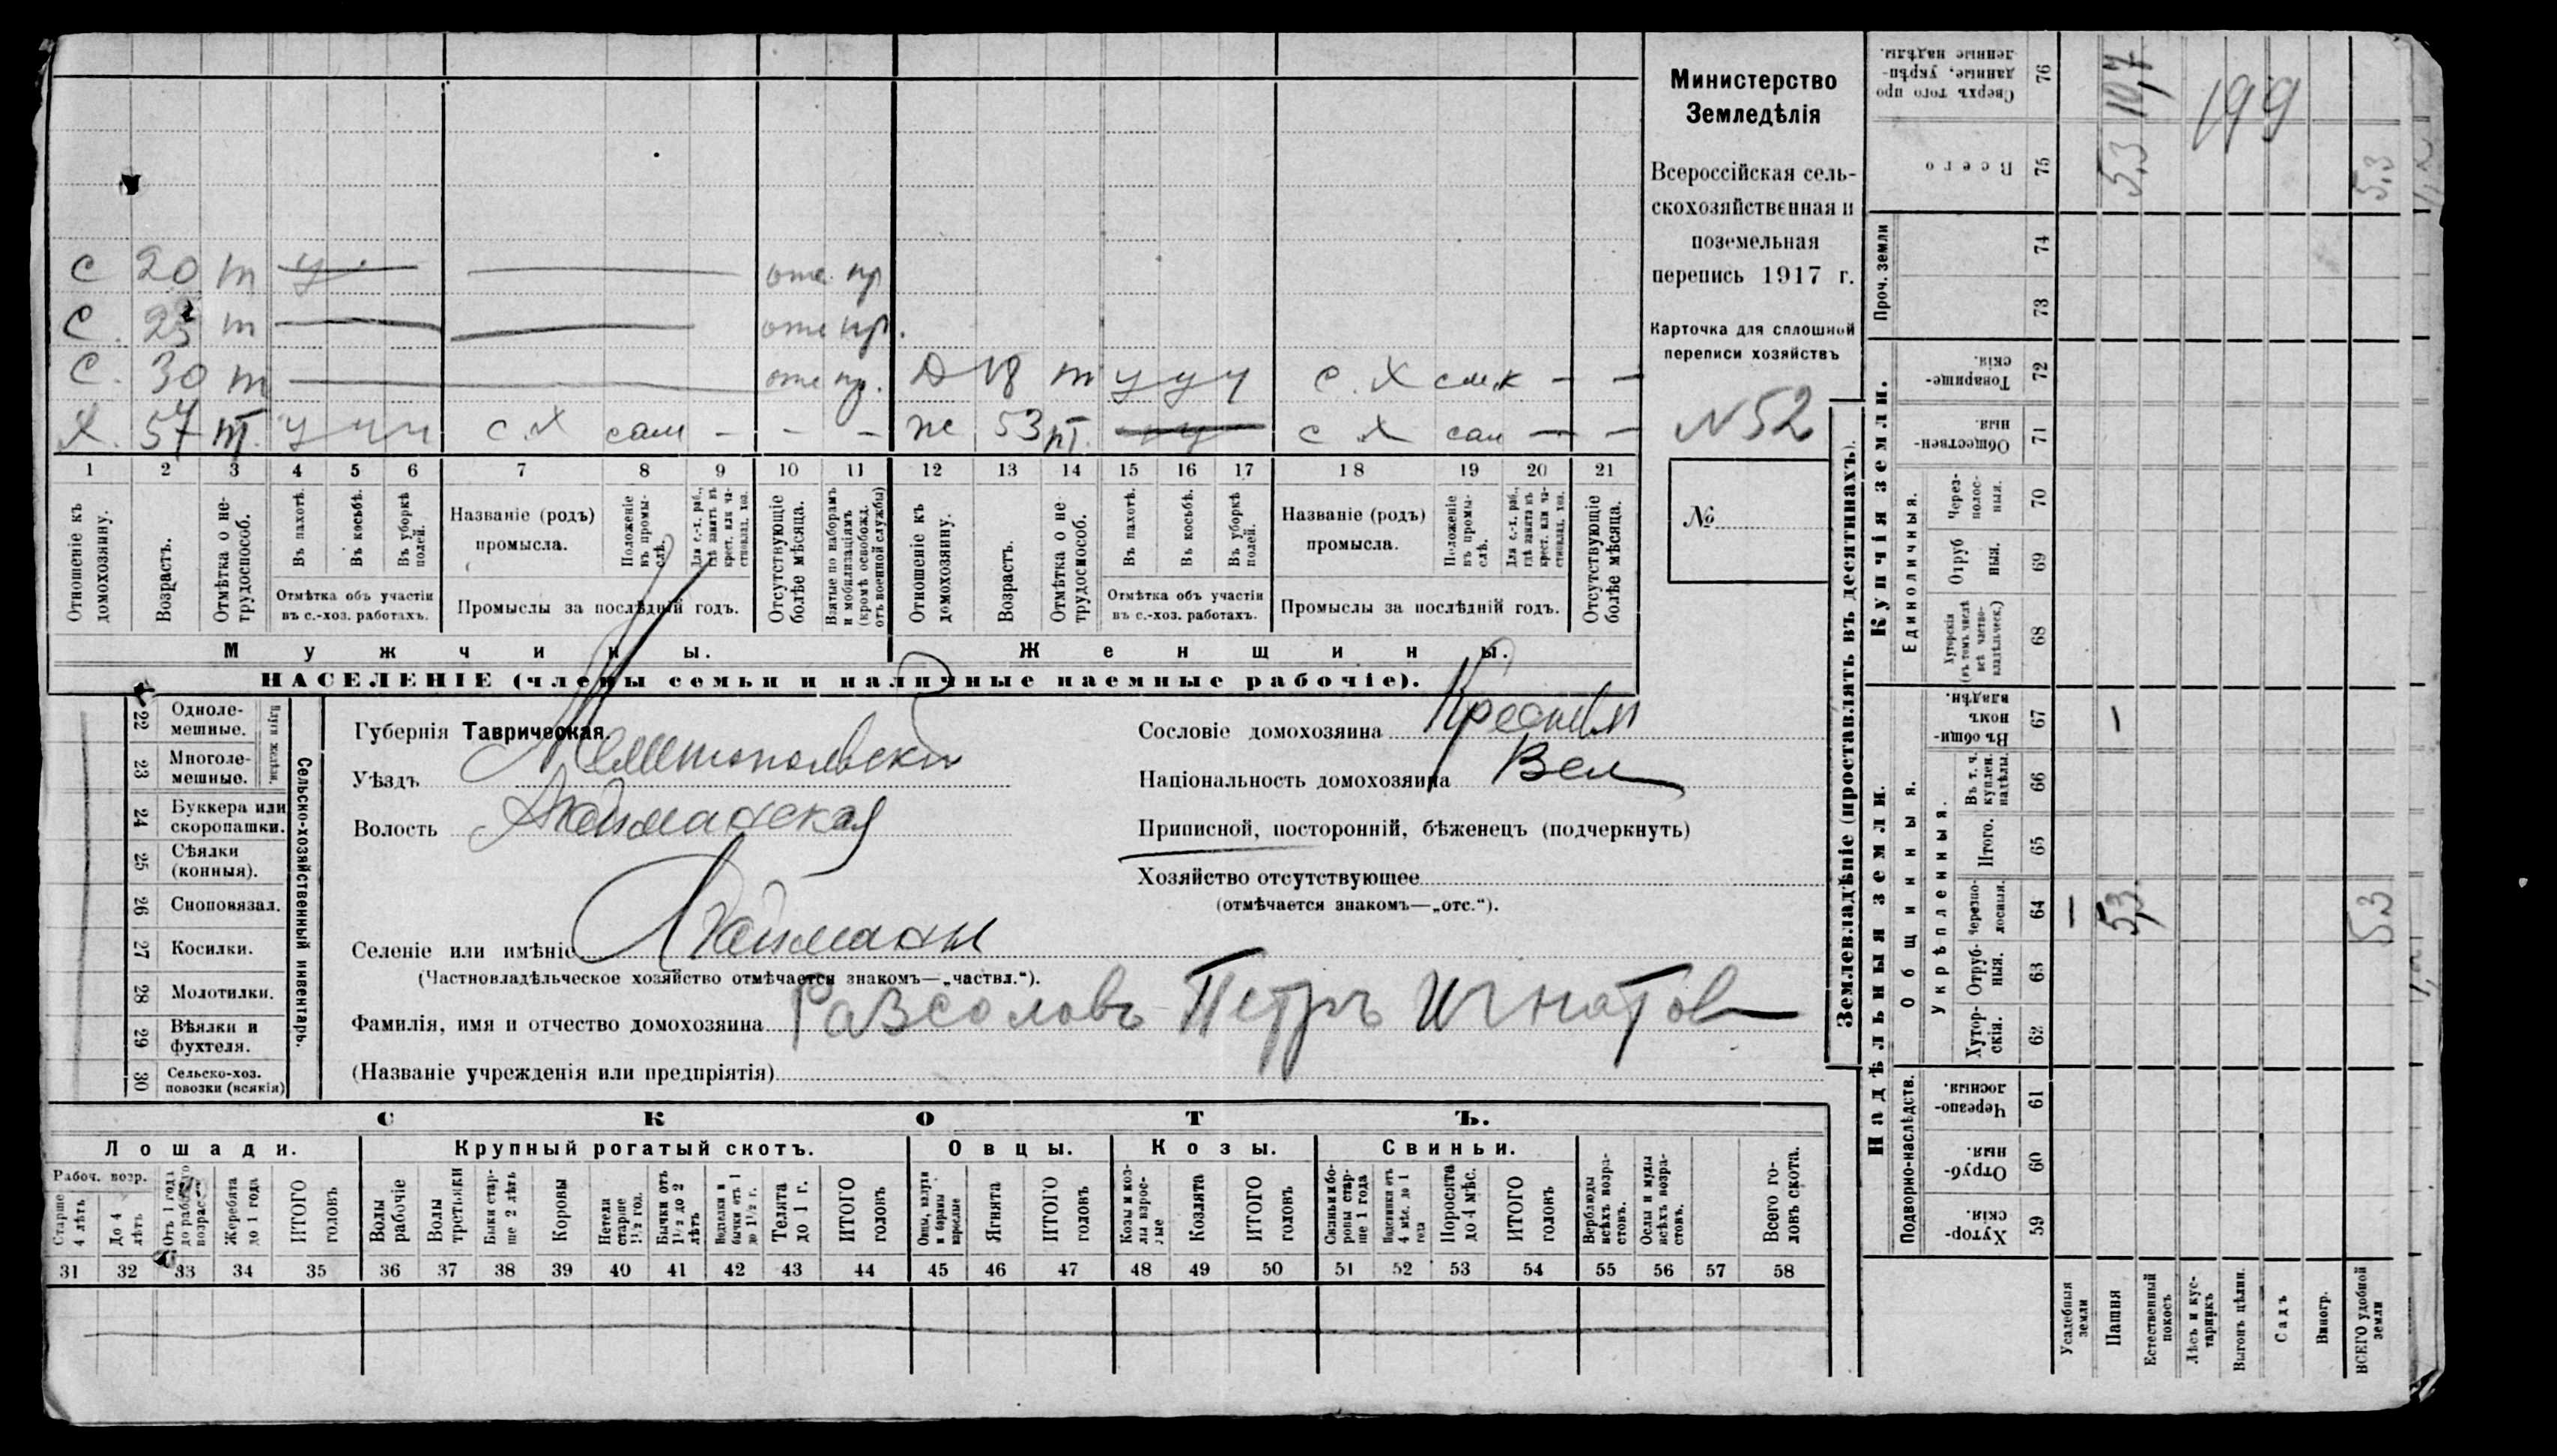 Министерство
Земледѣлія
Всероссійская сель-
скохозяйственная и
поземельная
перепись 1917 г.
Карточка для сплошной
переписи хозяйствъ
N 52
№
С 20 т у отс. пр
С. 23 т отс пр.
С. 30 т отс пр. Д 18 т у у у с. х
Х. 57 т. у ч ч с. х сам – – – ж 53 т. с х сам – –
1 2 3 4 5 6 7 8 9 10 11 12 13 14 15 16 17 18 19 20 21
Отношеніе къ домохозяину.
Возрастъ.
Отмѣтка о не-трудоспособ.
Въ пахотѣ.
Въ косьбѣ.
Въ уборкѣ полей.
Отмѣтка объ участіи въ с.-хоз. работахъ.
Названіе (родъ) промысла.
Положеніе въ промы-слѣ.
Промыслы за послѣдній годъ.
Отсутствующіе болѣе мѣсяца.
Взятые по наборамъ и мобилизаціямъ (кромѣ освобожд. отъ военной службы)
Отношеніе къ домохозяину.
Возрастъ.
Отмѣтка о не трудоспособ.
Въ пахотѣ.
Въ косьбѣ.
Въ уборкѣ полей.
Отмѣтка объ участіи въ с.-хоз. работахъ.
Названіе (родъ) промысла.
Положеніе въ промы-слѣ.
Промыслы за послѣдній годъ.
Отсутствующіе болѣе мѣсяца.
Мужчины. Женщины.
НАСЕЛЕНІЕ (члены семьи и наличные наемные рабочіе).
22 Одноле-мешные.
23 Многоле-мешные.
24 Буккера или скоропашки.
25 Сѣялки (конныя).
26 Сноповязал.
27 Косилки.
28 Молотилки.
29 Вѣялки и фухтеля.
30 Сельско-хоз. повозки (всякія)
Сельско-хозяйственный инвентарь.
Губернія Таврическая.
Уѣздъ Мелитопольский
Волость
Селеніе или имѣніе
(Частновладѣльческое хозяйство отмѣчается знакомъ—„частвл.“).
Фамилія, имя и отчество домохозяина Разсоловъ Петръ Игнатов
(Названіе учрежденія или предпріятія)
Сословіе домохозяина
Національность домохозяина Вел
Приписной, посторонній, бѣженецъ (подчеркнуть)
Хозяйство отсутствующее
(отмѣчается знакомъ—„отс.“).
СКОТЪ.
Лошади. Крупный рогатый скотъ. Овцы. Козы. Свиньи.
Рабоч. возр.
Старше 4 лѣтъ
До 4 лѣтъ
Отъ 1 года до рабочаго возраста
Жеребята до 1 года
ИТОГО головъ
Волы рабочіе
Волы третьяки
Быки стар-ше 2 лѣтъ
Коровы
Нетели старше 1½ год.
Бычки отъ 1½ до 2 лѣтъ
Телята до 1 г.
ИТОГО головъ
Ягнята
ИТОГО головъ
Козы и коз-лы взрос-лые
Козлята
ИТОГО головъ
Поросята до 4 мѣс.
ИТОГО головъ
Верблюды всѣхъ возра-стовъ.
Ослы и мулы всѣхъ возра-стовъ.
Всего го-ловъ скота.
31 32 33 34 35 36 37 38 39 40 41 42 43 44 45 46 47 48 49 50 51 52 53 54 55 56 57 58
Землевладѣніе (проставлять въ десятинахъ).
Надѣльныя земли. Купчія земли. Проч. земли
Подворно-наслѣдств.
Общинныя.
Укрѣпленныя.
Единоличныя.
Хутор-скія. 59
Отруб-ныя. 60
Черезпо-лосныя. 61
Хутор-скія. 62
Отруб-ныя. 63
Черезпо-лосныя. 64
Итого. 65
Въ т. ч. куплен. надѣлы. 66
Въ общин-номъ владѣн. 67
Хуторскія (въ томъ числѣ всѣ частно-владѣльческ.) 68
Отруб ныя. 69
Через-полос-ныя. 70
Обществен-ныя. 71
Товарище-скія. 72
73
74
Всего 75
Сверхъ того про данные, укрѣп-ленные надѣлы. 76
Усадебныя земли
Пашня 5,3 5,3 10,7
Естественный покосъ
Лѣсъ и кус-тарникъ
Выгонъ цѣлин.
Садъ
Виногр.
ВСЕГО удобной земли 5.3 5.3
199